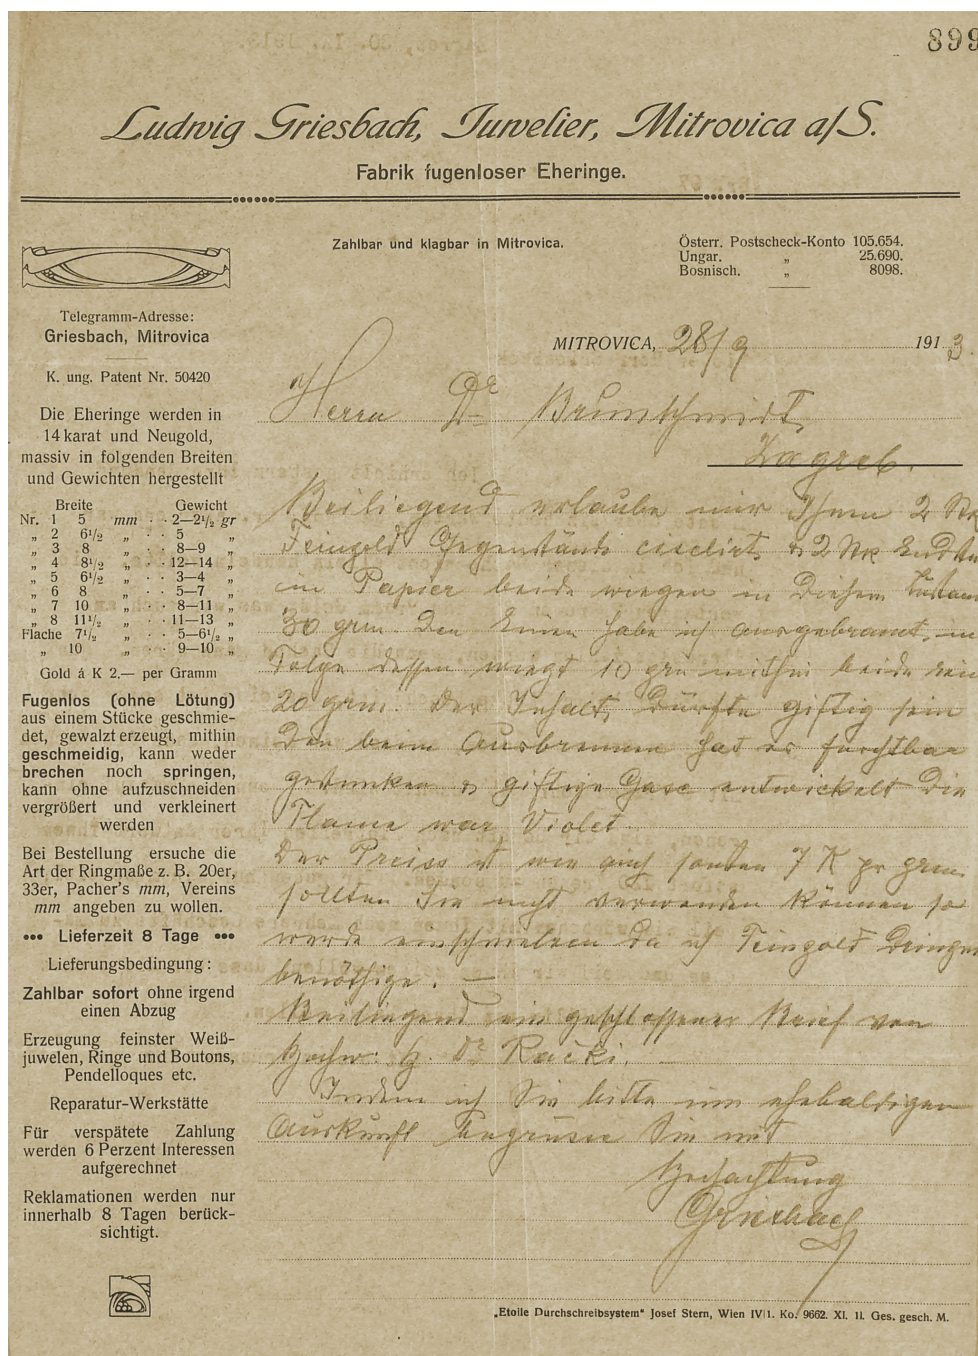 899
Ludwig Griesbach, Juwelier, Mitrovica a/S.
Fabrik fugenloser Eheringe.
Zahlbar und klagbar in Mitrovica.
Österr. Postscheck-Konto 105.654.
Ungar. „ 25.690.
Bosnisch. „ 8098.
Telegramm-Adresse:
Griesbach, Mitrovica
K. ung. Patent Nr. 50420
Die Eheringe werden in
14 karat und Neugold,
massiv in folgenden Breiten
und Gewichten hergestellt
Breite Gewicht
Nr. 1 5 mm · · 2—2½ gr
„ 2 6½ „ · · 5 „
„ 3 8 „ · · 8—9 „
„ 4 8½ „ · · 12—14 „
„ 5 6½ „ · · 3—4 „
„ 6 8 „ · · 5—7 „
„ 7 10 „ · · 8—11 „
„ 8 11½ „ · · 11—13 „
Flache 7½ „ · · 5—6½ „
„ 10 „ · · 9—10 „
Gold á K 2.— per Gramm
Fugenlos (ohne Lötung)
aus einem Stücke geschmie-
det, gewalzt erzeugt, mithin
geschmeidig, kann weder
brechen noch springen,
kann ohne aufzuschneiden
vergrößert und verkleinert
werden
Bei Bestellung ersuche die
Art der Ringmaße z. B. 20er,
33er, Pacher's mm, Vereins
mm angeben zu wollen.
••• Lieferzeit 8 Tage •••
Lieferungsbedingung:
Zahlbar sofort ohne irgend
einen Abzug
Erzeugung feinster Weiß-
juwelen, Ringe und Boutons,
Pendelloques etc.
Reparatur-Werkstätte
Für verspätete Zahlung
werden 6 Perzent Interessen
aufgerechnet
Reklamationen werden nur
innerhalb 8 Tagen berück-
sichtigt.
MITROVICA, 28/9 1913.
Herrn Dr Brunschmidt
Zagreb.
Beiliegend erlaube mir Ihnen 2 Stk
Feingold Gegenstände ciselirt & 2 Stk
im Papier beide wiegen in diesem
30 grm. Den Einen habe ich ausgebrannt, in
Folge dessen wiegt 10 grm mithin beide
20 grm. Der Inhalt dürfte giftig sein
den beim Ausbrennen hat es furchtbar
gestunken & giftige Gase entwickelt die
Flame war Violet.
Der Preiss ist wie auch sonten 7 K pr grm.
sollten Sie nicht verwenden können so
werde einschmelzen da ich Feingold
benöthige. —
Beiliegend ein geschlossener Brief von
Hochw. H. Dr Rački. —
Indem ich Sie bitte um ehebaldigen
Auskunft begrüsse Sie mit
Hochachtung
Griesbach
„Etoile Durchschreibsystem“ Josef Stern, Wien IV/1. Ko. 9662. XI. 11. Ges. gesch. M.